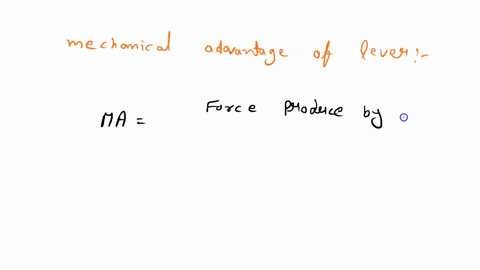 mechanical advantage of lever:-
MA = Force produce by